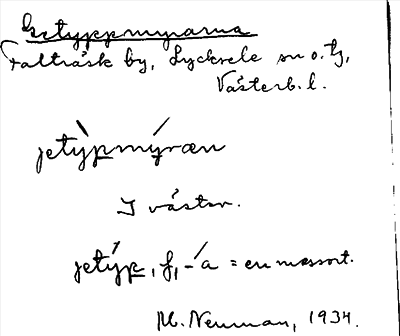 Getyppmyrarna
Falträsk by, Lycksele sn o. tg,
Västerb. l.
jetỳpmýræn
I väster.
jetýp, f, -a = en mossort.
M. Neuman, 1934.